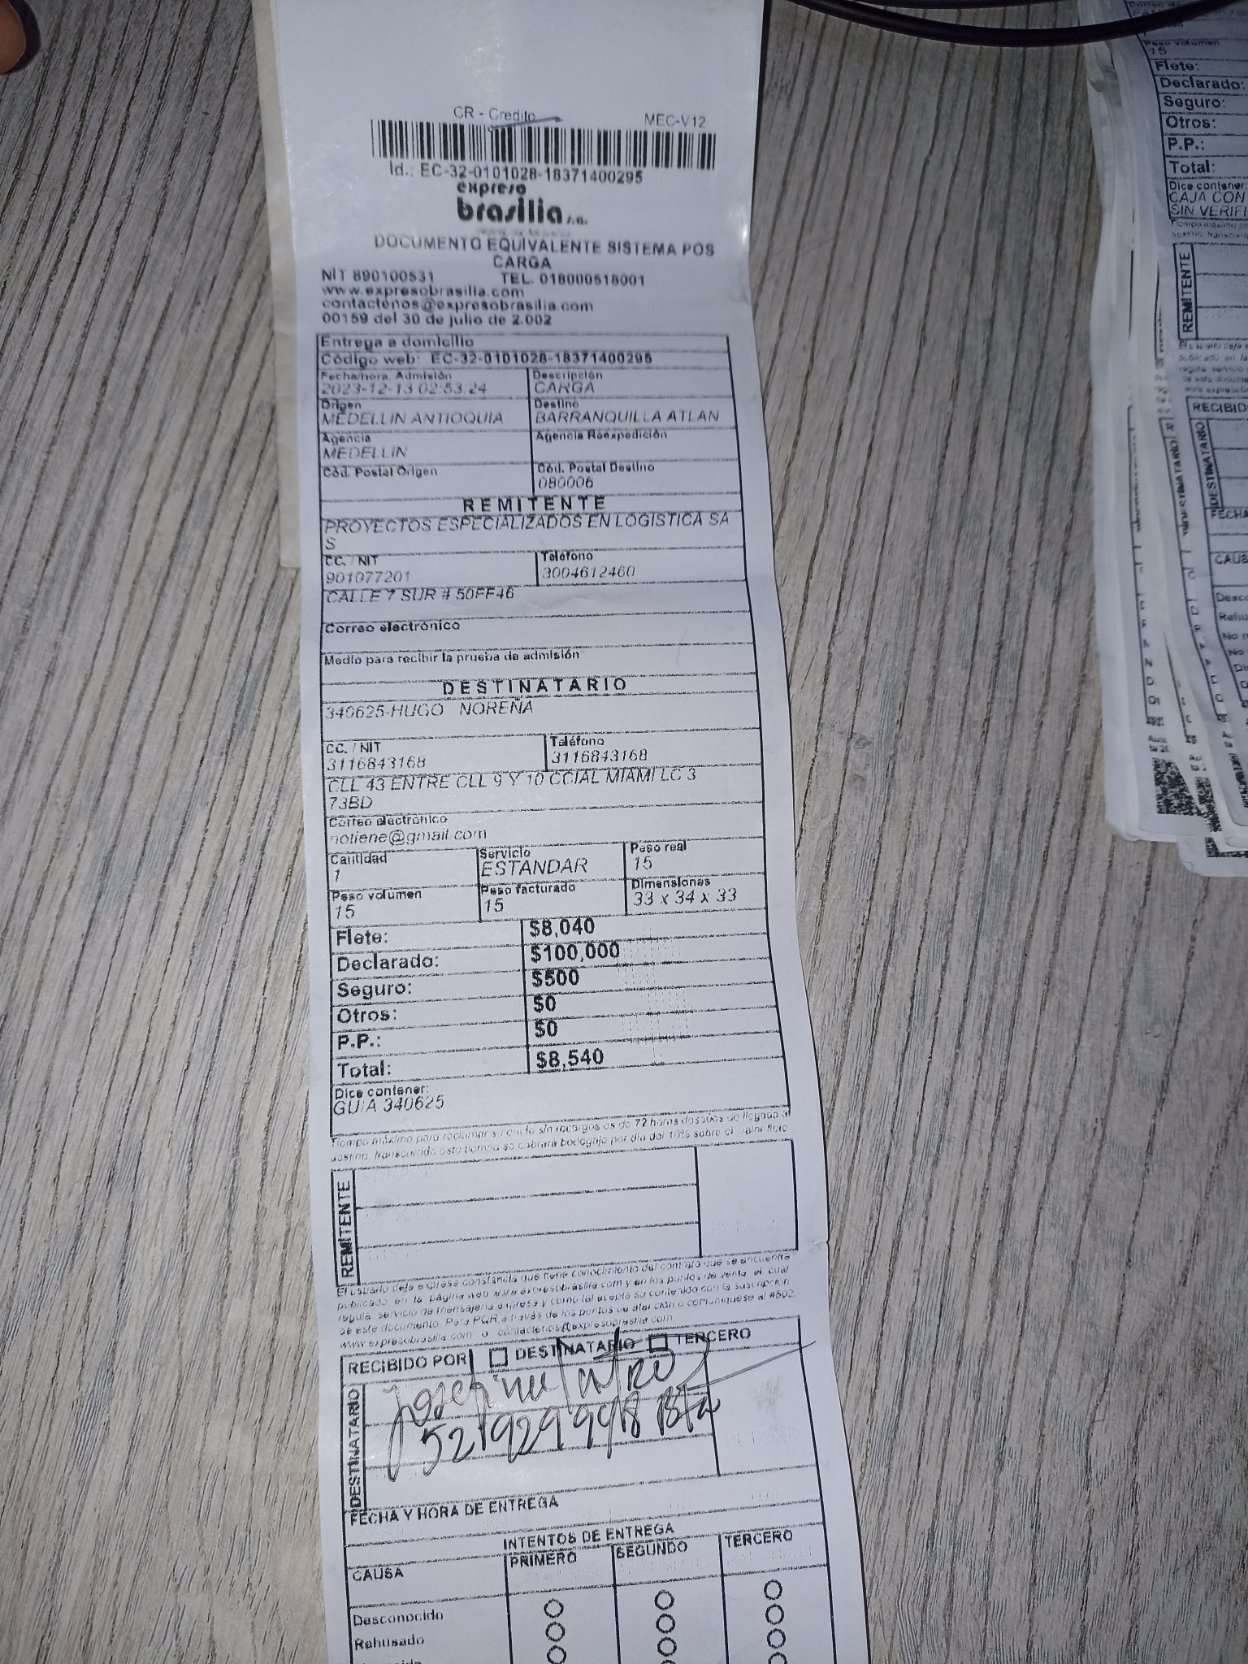 CR - Credito MEC-V12
Id.: EC-32-0101028-18371400295
expreso
brasilia s.a.
DOCUMENTO EQUIVALENTE SISTEMA POS
CARGA
NIT 890100531 TEL. 018000518001
www.expresobrasilia.com
contactenos@expresobrasilia.com
00159 del 30 de julio de 2.002
Entrega a domicilio
Código web: EC-32-0101028-18371400295
Fecha/hora. Admisión Descripción
2023-12-13 02:53:24 CARGA
Origen Destino
MEDELLIN ANTIOQUIA BARRANQUILLA ATLAN
Agencia Agencia Reexpedición
MEDELLIN
Cód. Postal Origen Cód. Postal Destino
080006
REMITENTE
PROYECTOS ESPECIALIZADOS EN LOGISTICA SA
S
CC. / NIT Teléfono
901077201 3004612460
CALLE 7 SUR # 50FF46
Correo electrónico
Medio para recibir la prueba de admisión
DESTINATARIO
340625-HUGO NOREÑA
CC. / NIT Teléfono
3116843168 3116843168
CLL 43 ENTRE CLL 9 Y 10 CCIAL MIAMI LC 3
73BD
Correo electrónico
notiene@gmail.com
Cantidad Servicio Peso real
1 ESTANDAR 15
Peso volumen Peso facturado Dimensiones
15 15 33 x 34 x 33
Flete: $8,040
Declarado: $100,000
Seguro: $500
Otros: $0
P.P.: $0
Total: $8,540
Dice contener:
GUIA 340625
Tiempo máximo para reclamar su envío sin recargos es de 72 horas después de llegada al
destino, transcurrido este tiempo se cobrará bodegaje por día del 10% sobre el valor flete
REMITENTE
El usuario deja expresa constancia que tiene conocimiento del contrato que se encuentra
publicado en la página web www.expresobrasilia.com y en los puntos de venta, el cual
regula servicio de mensajería expresa y como tal acepta su contenido con la suscripción
de este documento. Para PQR, a través de los puntos de atención o comuníquese al #502,
www.expresobrasilia.com o contactenos@expresobrasilia.com
RECIBIDO POR DESTINATARIO TERCERO
DESTINATARIO
Josefina
FECHA Y HORA DE ENTREGA
INTENTOS DE ENTREGA
CAUSA PRIMERO SEGUNDO TERCERO
Desconocido
Rehusado
Peso volumen
15
Flete:
Declarado:
Seguro:
Otros:
P.P.:
Total:
Dice contener:
CAJA CON
SIN VERIFI
REMITENTE
RECIBID
DESTINATARIO
FECHA
CAUS